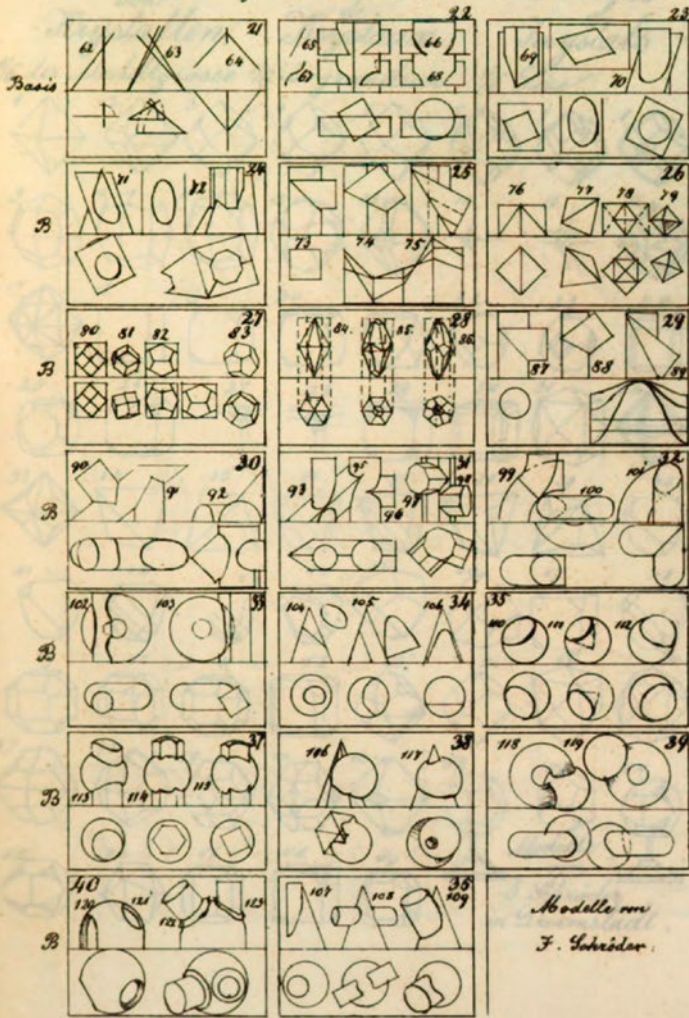 21
62 63 64
Basis
22
65 66
67 68
23
69 70
24
71 72
B
25
73 74 75
26
76 77 78 79
27
80 81 82 83
B
28
84. 85. 86.
29
87 88 89
30
90 91 92
B
31
93 95 96 97 98
32
99 100 101
33
102 103
B
34
104 105 106
35
110 111 112
37
113 114 115
B
38
116 117
39
118 119
40
120 121 122 123
B
36
107 108 109
Modelle von
F. Schröder.